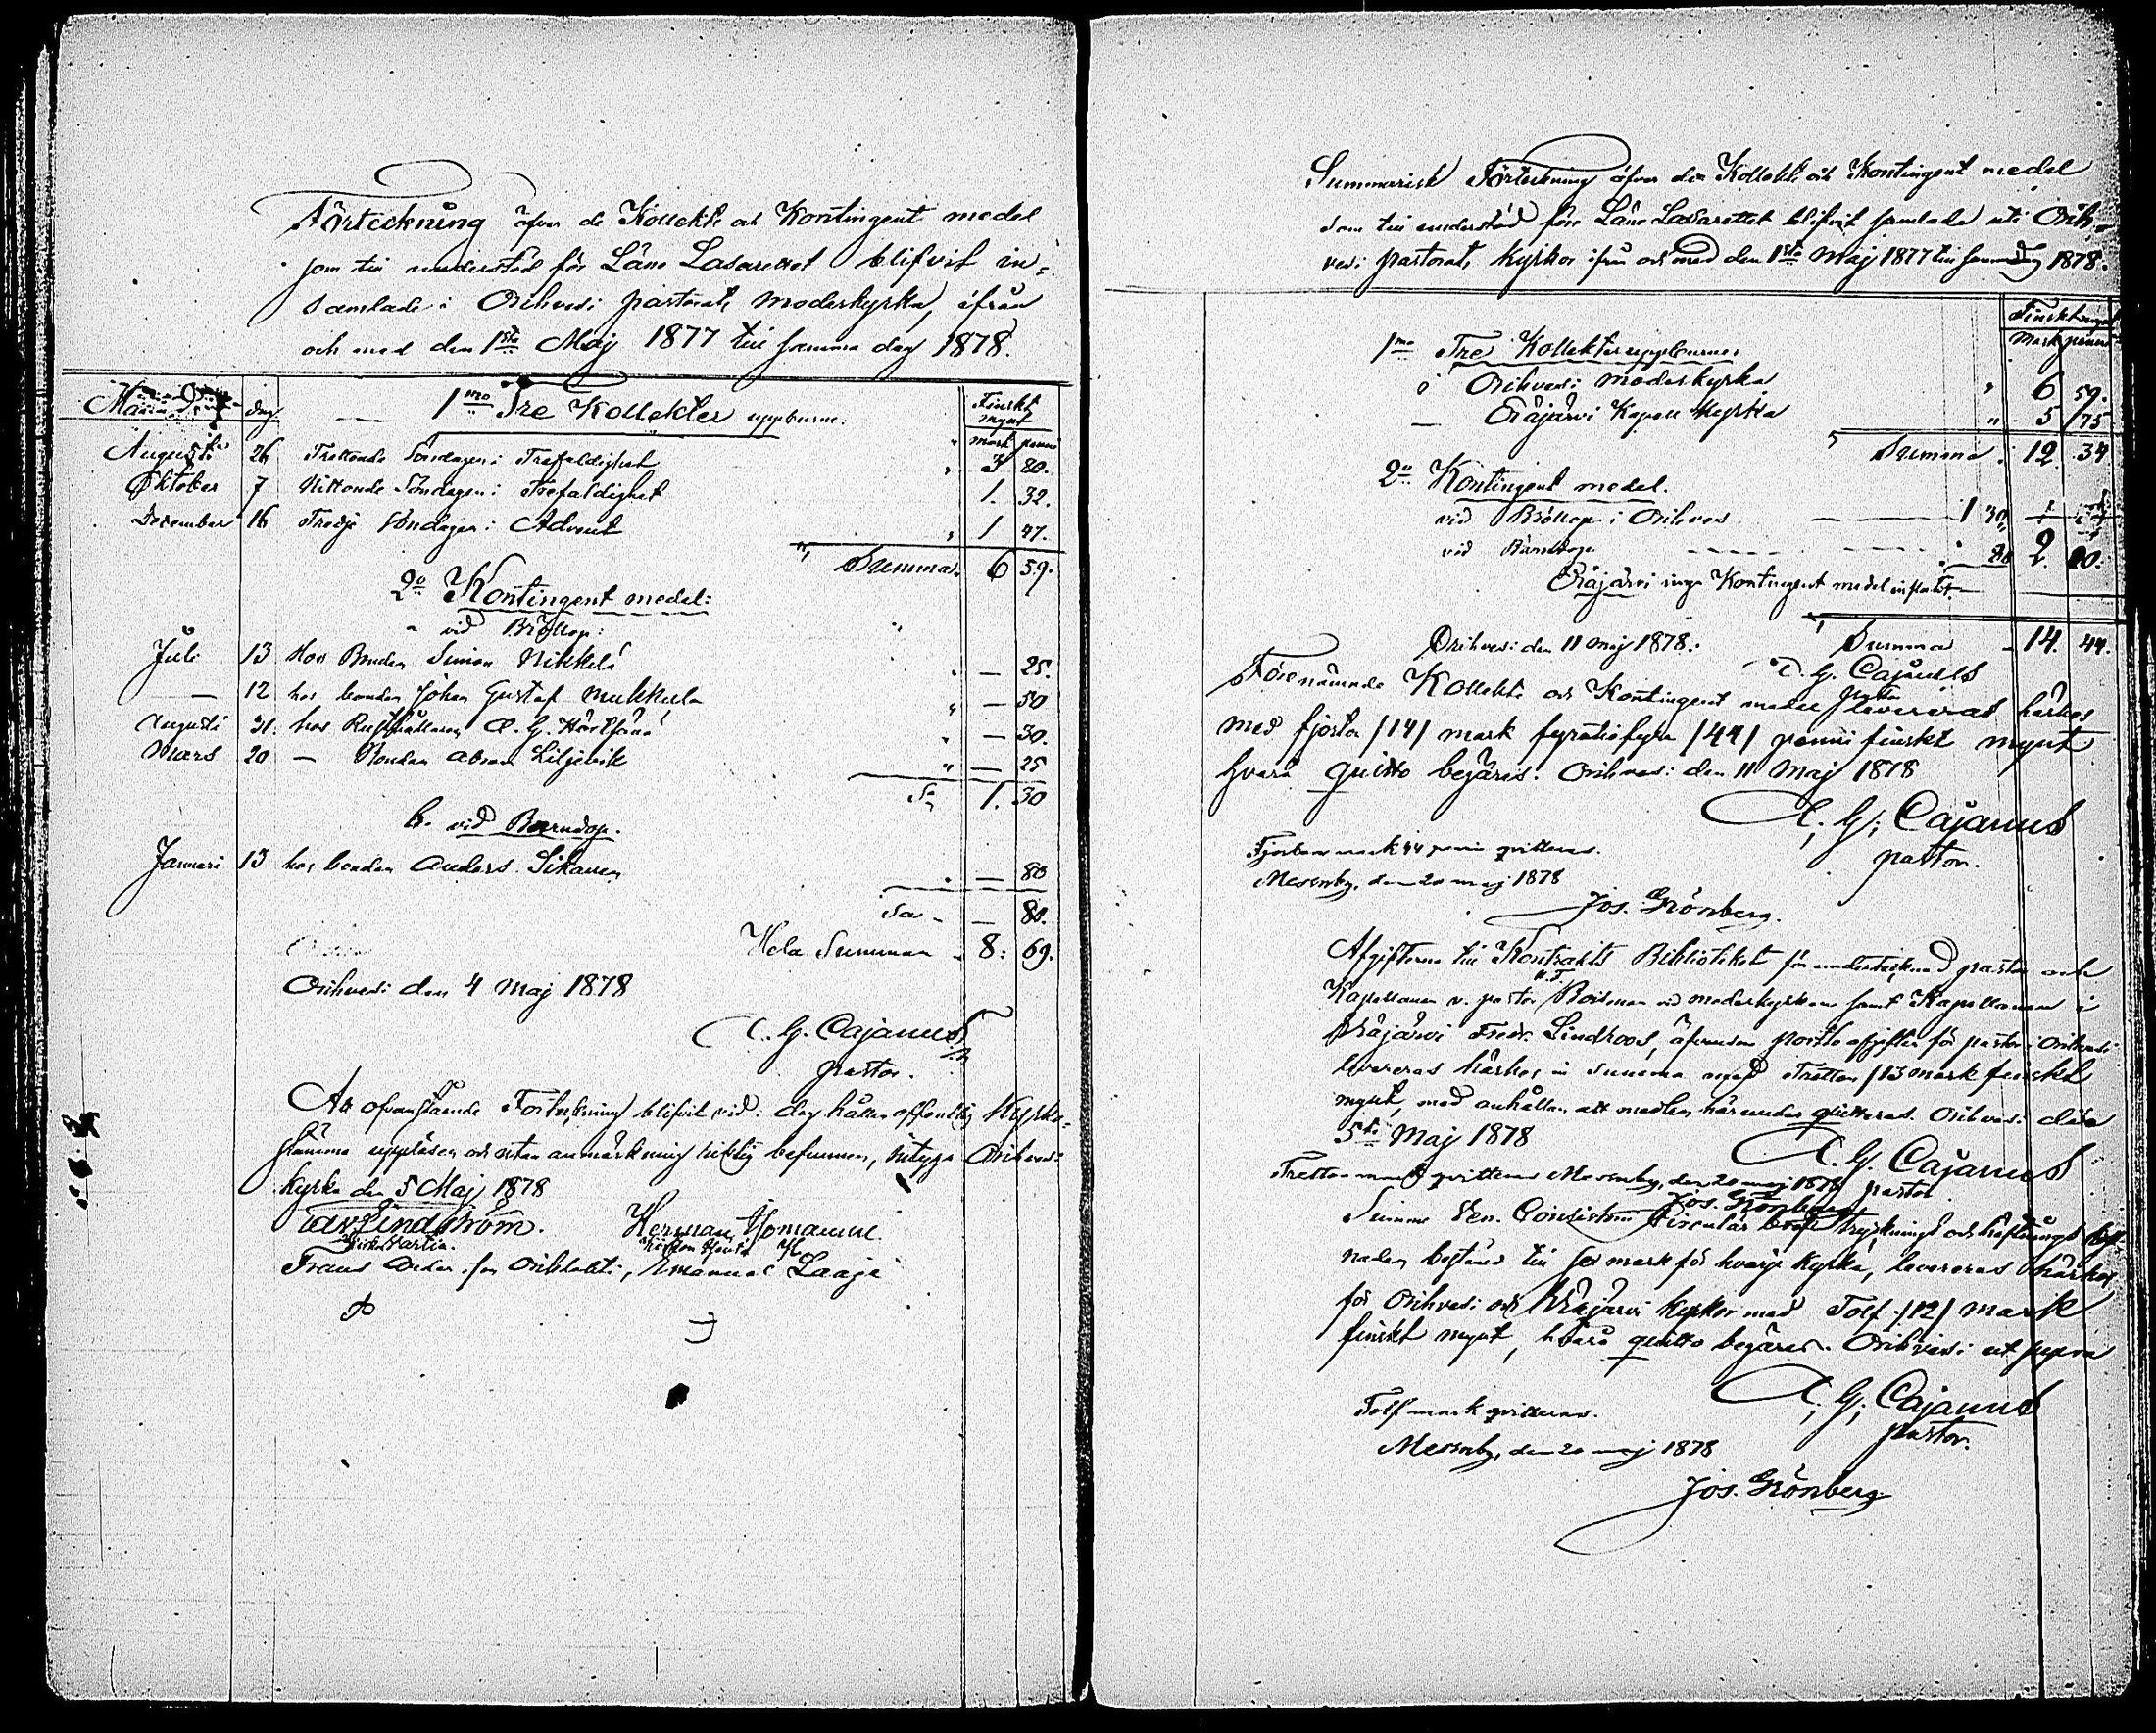 Förteckning öfver de Kollekt och Kontingent medel
som till understöd för Läns Lasarettet blifvit in=
samlade i Orihvesi pastorats moderkyrka, ifrån
och med den 1sta Maj 1877 till samma dag 1878.
Dag 1mo Tre Kollekter uppburne: Finskt mynt
mark penni
Augusti 26 Trettonde Söndagen i Trefaldighet " 3 80.
Oktober 7 Nittonde Söndagen i Trefaldighet 1. 32.
December 16 Tredje Söndagen i Advent " 1 47.
Summa 6 59.
2o Kontingent medel:
a vid Bröllop:
Juli 13 Hos Bonden Simon Nikkilä " — 25.
— 12 hos bonden Johan Gustaf Mukkula " — 50
Augusti 31. hos Rusthållaren C. G. " — 30.
Mars 20 — Bonden Abram Liljebäck " — 25
Sa 1. 30
b. vid Barndop.
Januari 13 hos bonden Anders Sikanen — 80
Sa — 80.
Hela Summan 8: 69.
Orihvesi den 4 Maj 1878
A. G. Cajanus
pastor.
Att ofvanstående Förteckning blifvit vid i dag hållen offentlig Kyrko=
stämma uppläsen och utan anmärkning riktig befunnen, intyga Orihvesi
Kyrka den 5 Maj 1878
Lindström. Herman
Frans Emanuel Laaja
Summarisk Förteckning öfver de Kollekt och Kontingent medel
som till understöd för Läns Lasarettet blifvit samlade uti Orih=
vesi pastorats Kyrkor ifrån och med den 1sta Maj 1877 till samma dag 1878.
Finskt mynt
Mark penni
1mo Tre Kollekter uppburne
i Orihvesi moderkyrka " 6 59.
— Eräjärvi Kapell Kyrka " 5 75
Summa 12 34
2o Kontingent medel.
vid Bröllop i Orihvesi — 1 30
vid Barndop — 80 2. 10.
Eräjärvi inga Kontingent medel influtit —
Orihvesi den 11 Maj 1878. Summa 14. 44.
A. G. Cajanus
pastor
Förenämnde Kollekt och Kontingent medel levereras härhos
med fjorton /14/ mark fyratiofyra /44/ penni finskt mynt
hvarå quitto begäres. Orihvesi den 11 Maj 1878
A. G. Cajanus
pastor.
Fjorton mark 44 penni qvitteras.
Messuby, den 20 maj 1878
Jos. Grönberg.
Afgifterna till Kontrakts Biblioteket för undertecknad pastor och
Kapellanen v. pastor Roitman vid moderkyrkan samt Kapellanen i
Eräjärvi Fredr. Lindroos, äfvensom porto afgiften för pastor i Orihvesi
levereras härhos in summa med Tretton /13 mark finskt
mynt, med anhållan att medlen härunder quitteras. Orihvesi den
5te Maj 1878
A. G. Cajanus
pastor
Tretton mark qvitteras Messuby, den 20 maj 1878
Jos. Grönberg
Summa Ven. Consistorii Circulär bref trycknings och häftnings kost=
naden bestånd till sex mark för hvarje Kyrka, levereras härhos
för Orihvesi och Eräjärvi Kyrkor med Tolf /12/ mark
finskt mynt, hvarå quitto begäres. Orihvesi ut supra
A. G. Cajanus
pastor.
Tolf mark qvitteras.
Messuby, den 20 maj 1878
Jos. Grönberg